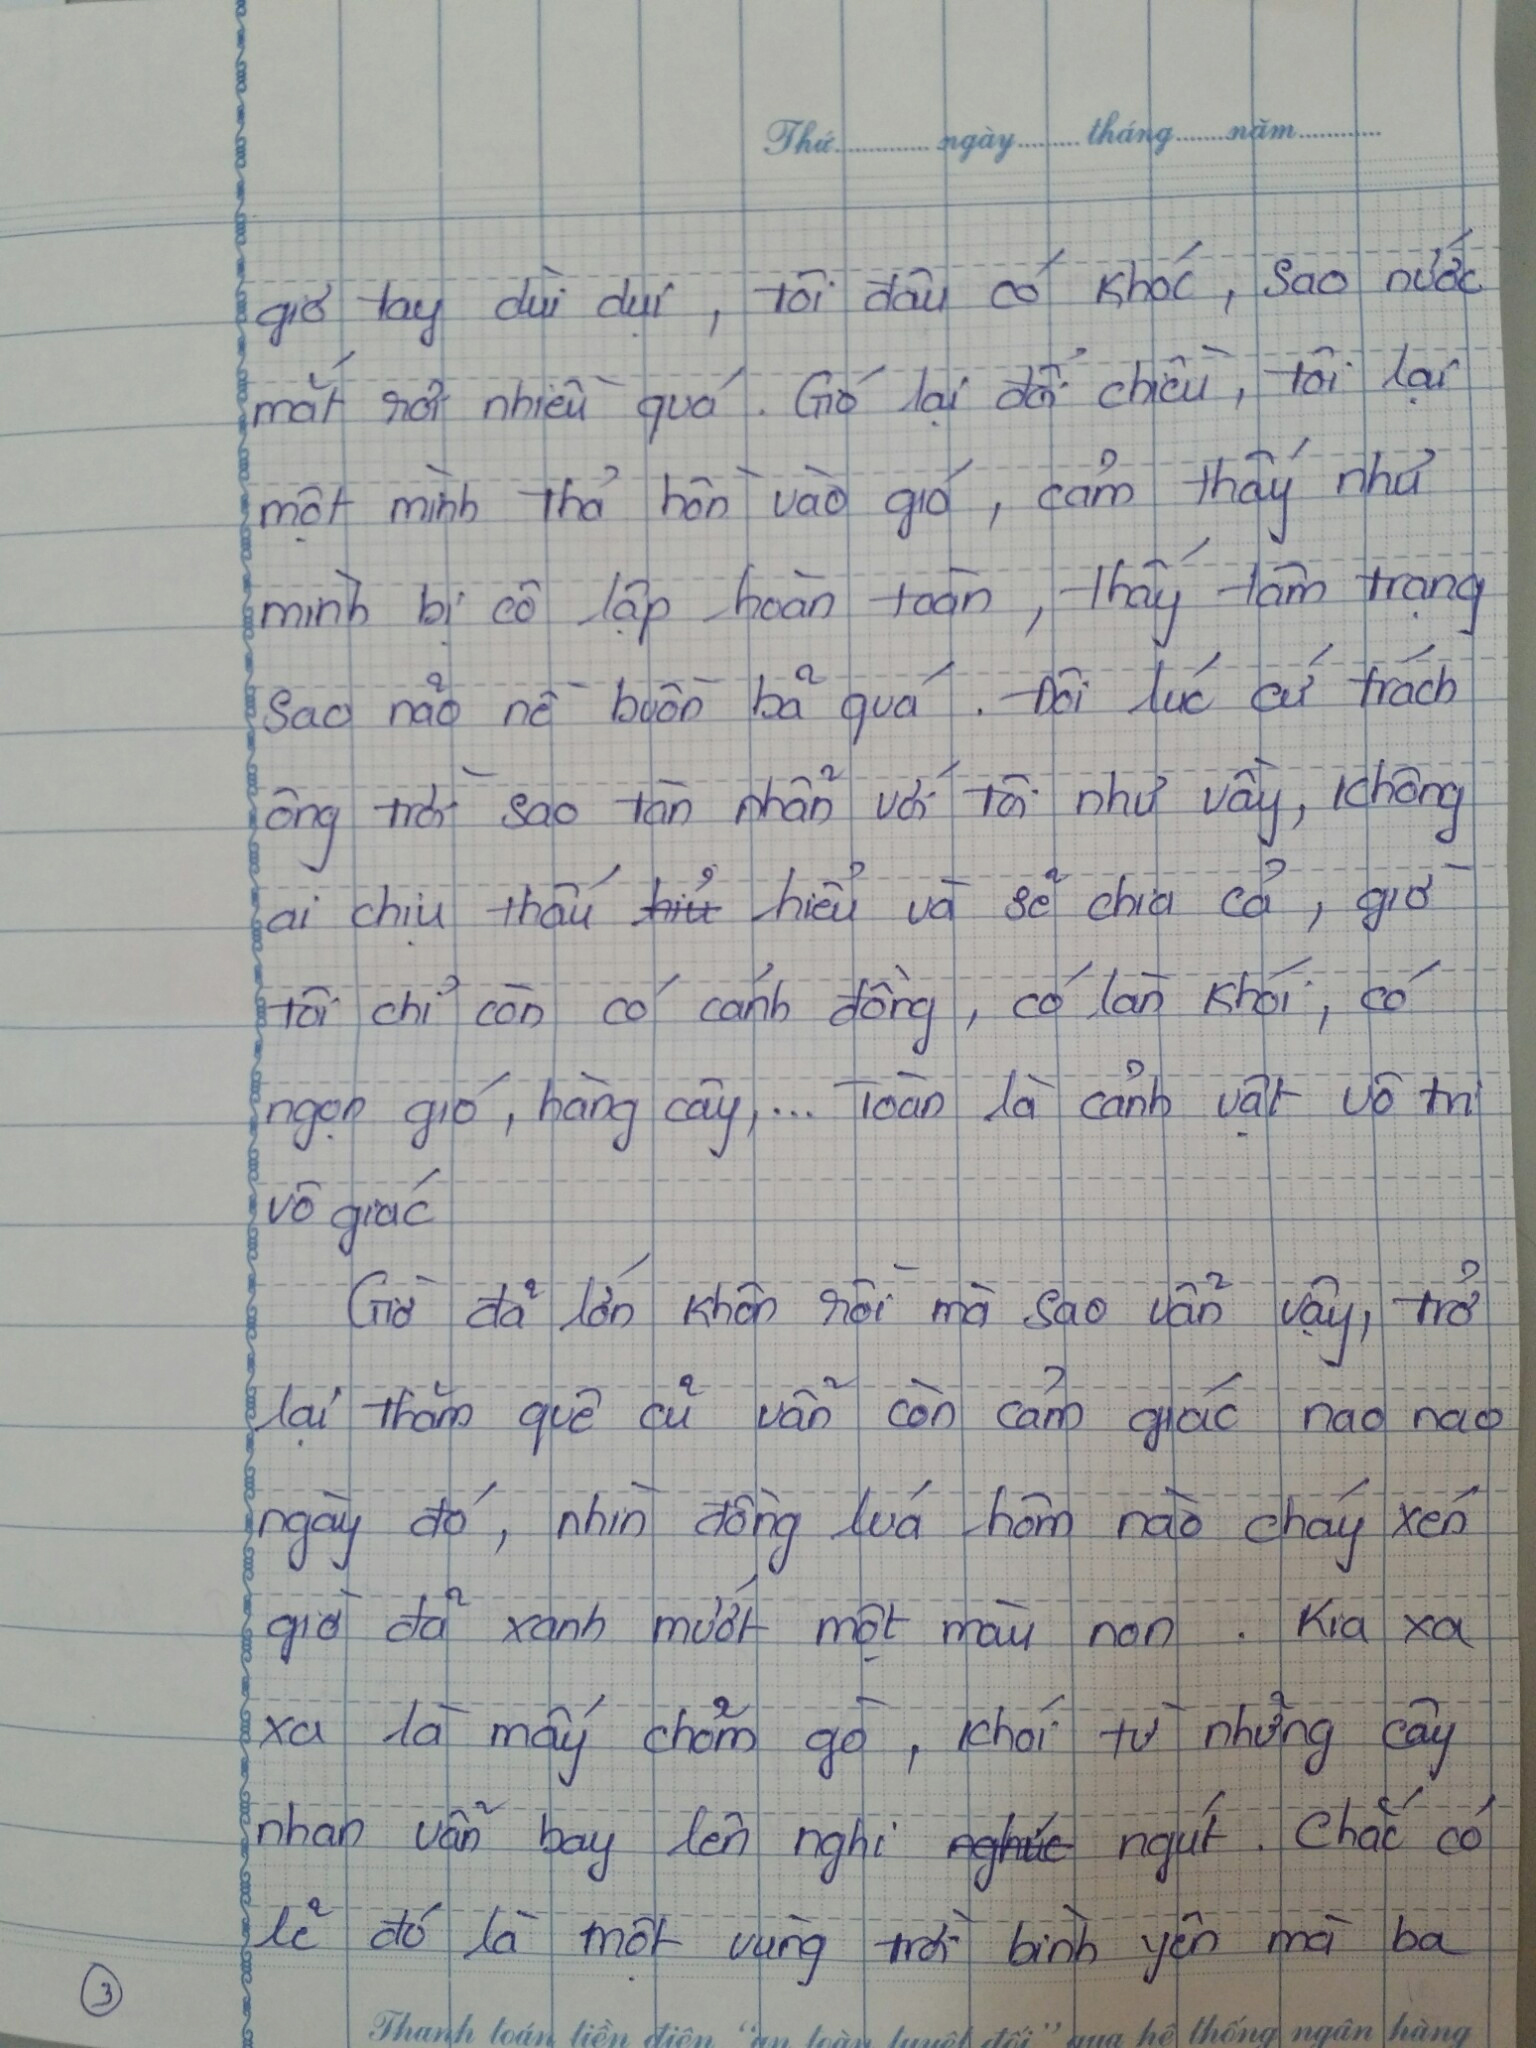 Thứ............ ngày........ tháng...... năm..........
giơ tay dùi dụi, tôi đâu có khóc, sao nước
mắt rơi nhiều quá. Gió lại đổi chiều, tôi lại
một mình thả hồn vào gió, cảm thấy như
mình bị cô lập hoàn toàn, thấy tâm trạng
sao não nề buồn bã quá. Đôi lúc cứ trách
ông trời sao tàn nhẫn với tôi như vầy, không
ai chịu thấu hiể hiểu và sẽ chia cả, giờ
tôi chỉ còn có cánh đồng, có làn khói, có
ngọn gió, hàng cây,... Toàn là cảnh vật vô tri
vô giác
Giờ đã lớn khôn rồi mà sao vẫn vậy, trở
lại thăm quê cũ vẫn còn cảm giác nao nao
ngày đó, nhìn đồng lúa hôm nào cháy xén
giờ đã xanh mướt một màu non. Kia xa
xa là mấy chỏm gò, khói từ những cây
nhan vẫn bay lên nghi nghúc ngút. Chắc có
lẽ đó là một vùng trời bình yên mà ba
3
Thanh toán tiền điện "an toàn tuyệt đối" qua hệ thống ngân hàng